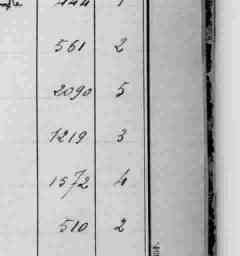 444 1
561 2
2090 5
1219 3
1572 4
510 2